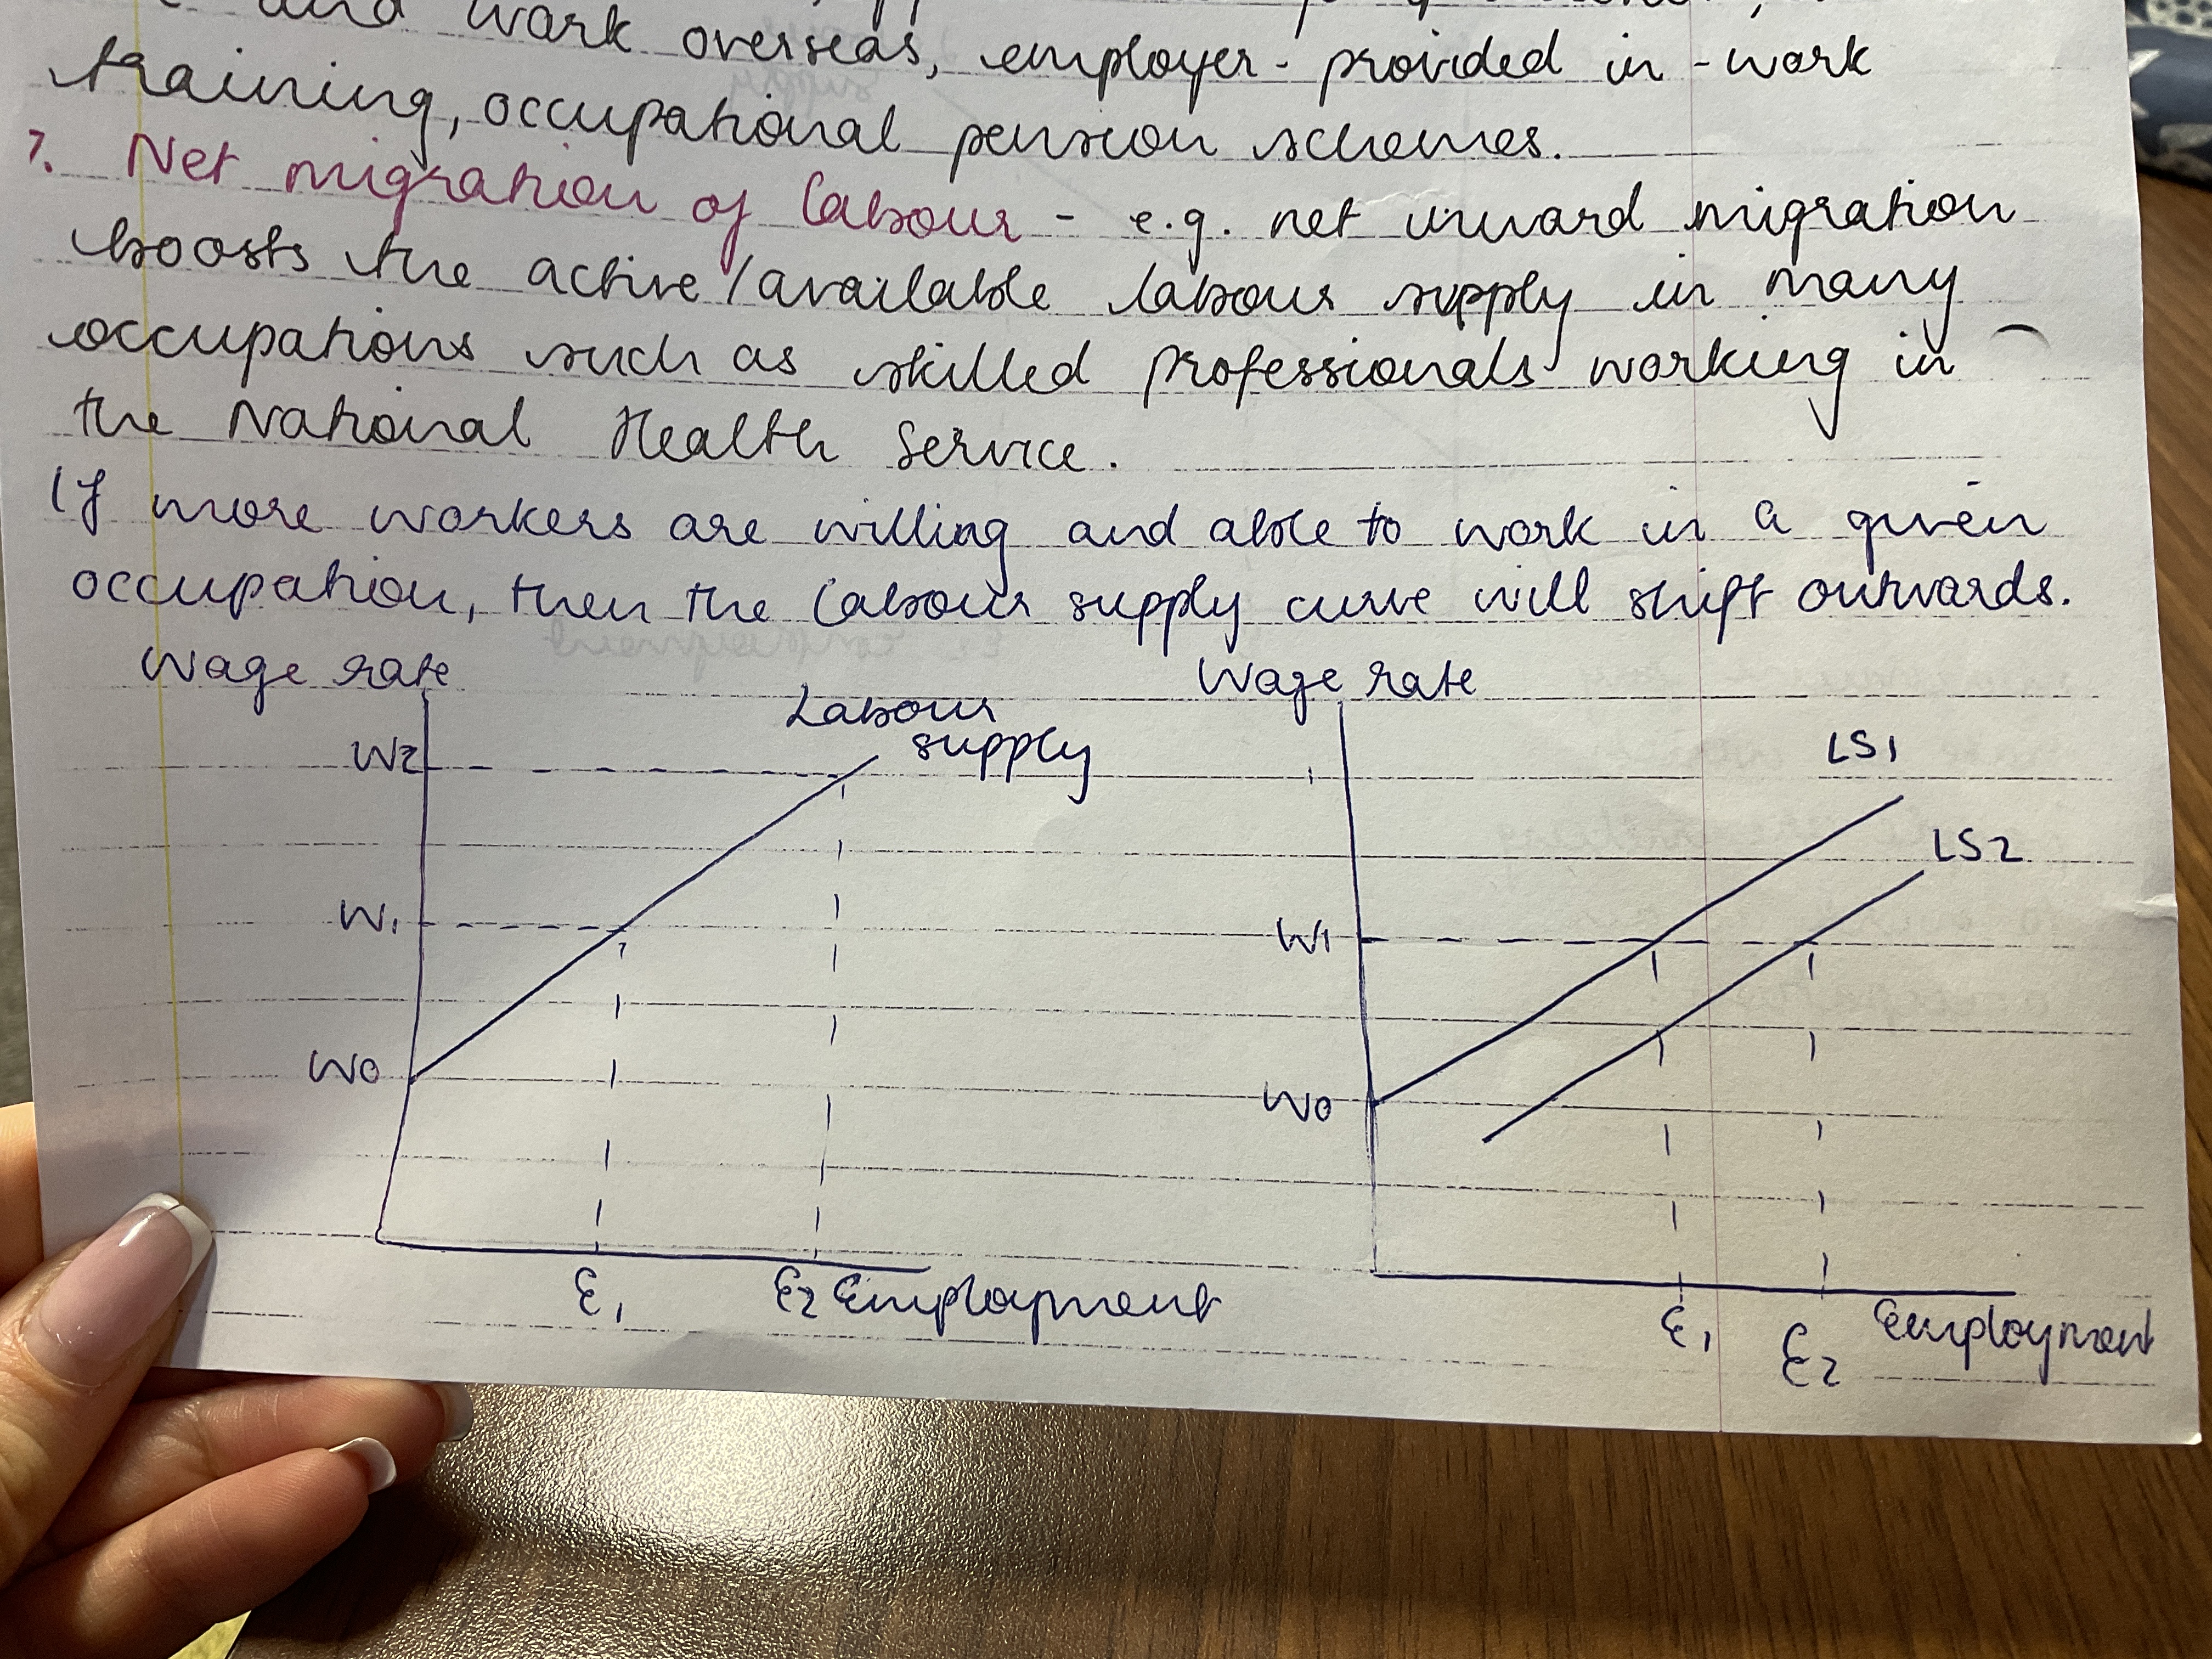 and work overseas, employer-provided in-work
training, occupational pension schemes.
7. Net migration of labour - e.g. net inward migration
boosts the active/available labour supply in many
occupations such as skilled professionals working in
the National Health Service.
If more workers are willing and able to work in a given
occupation, then the labour supply curve will shift outwards.
Wage rate
Labour
supply
W2
W1
W0
E1
E2
Employment
Wage rate
LS1
LS2
W1
W0
E1
E2
Employment